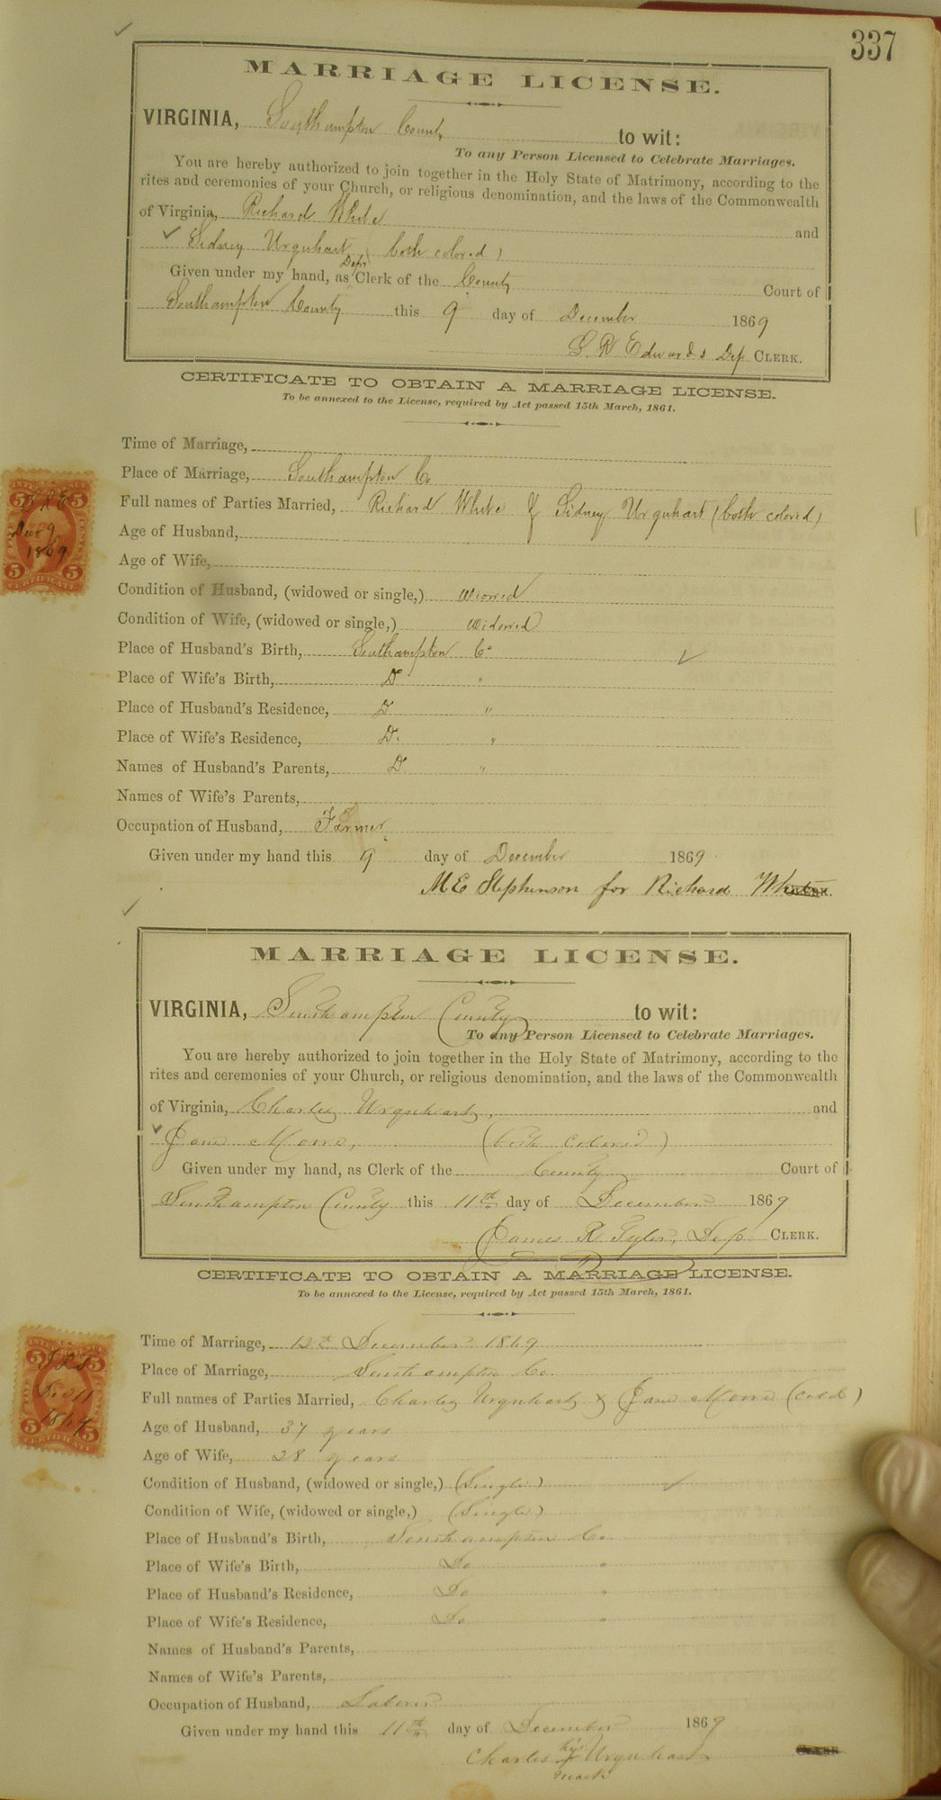 337
MARRIAGE LICENSE.
VIRGINIA, Southampton County to wit:
To any Person Licensed to Celebrate Marriages.
You are hereby authorized to join together in the Holy State of Matrimony, according to the
rites and ceremonies of your Church, or religious denomination, and the laws of the Commonwealth
of Virginia, Richard White and
Sidney Urquhart (both colored)
Given under my hand, as Depy Clerk of the County Court of
Southampton County this 9 day of December 1869
L R Edwards Dep CLERK.
CERTIFICATE TO OBTAIN A MARRIAGE LICENSE.
To be annexed to the License, required by Act passed 15th March, 1861.
Time of Marriage,
Place of Marriage, Southampton Co
Full names of Parties Married, Richard White & Sidney Urquhart (both colored)
Age of Husband,
Age of Wife,
Condition of Husband, (widowed or single,)
Condition of Wife, (widowed or single,) Widowed
Place of Husband's Birth, Southampton Co
Place of Wife's Birth, D "
Place of Husband's Residence, D "
Place of Wife's Residence, D. "
Names of Husband's Parents, D "
Names of Wife's Parents,
Occupation of Husband, Farmer
Given under my hand this 9 day of December 1869
M E Stephenson for Richard White
5 5
Dec 9
1869
5 5
CERTIFICATE
MARRIAGE LICENSE.
VIRGINIA, Southampton County to wit:
To any Person Licensed to Celebrate Marriages.
You are hereby authorized to join together in the Holy State of Matrimony, according to the
rites and ceremonies of your Church, or religious denomination, and the laws of the Commonwealth
of Virginia, Charley Urquhart, and
Jane (both colored)
Given under my hand, as Clerk of the County Court of
Southampton County this 11th day of December 1869
James R Tyler, Dep CLERK.
CERTIFICATE TO OBTAIN A MARRIAGE LICENSE.
To be annexed to the License, required by Act passed 15th March, 1861.
Time of Marriage, December 1869
Place of Marriage, Southampton Co.
Full names of Parties Married, Charley Urquhart & Jane (cold)
Age of Husband, 37 years
Age of Wife, 28 years
Condition of Husband, (widowed or single,) (Single)
Condition of Wife, (widowed or single,) (Single)
Place of Husband's Birth, Southampton Co
Place of Wife's Birth, Do "
Place of Husband's Residence, Do "
Place of Wife's Residence, Do "
Names of Husband's Parents,
Names of Wife's Parents,
Occupation of Husband, Laborer
Given under my hand this 11th day of December 1869
Charles his Urquhart
mark
5 5
1869
5 5